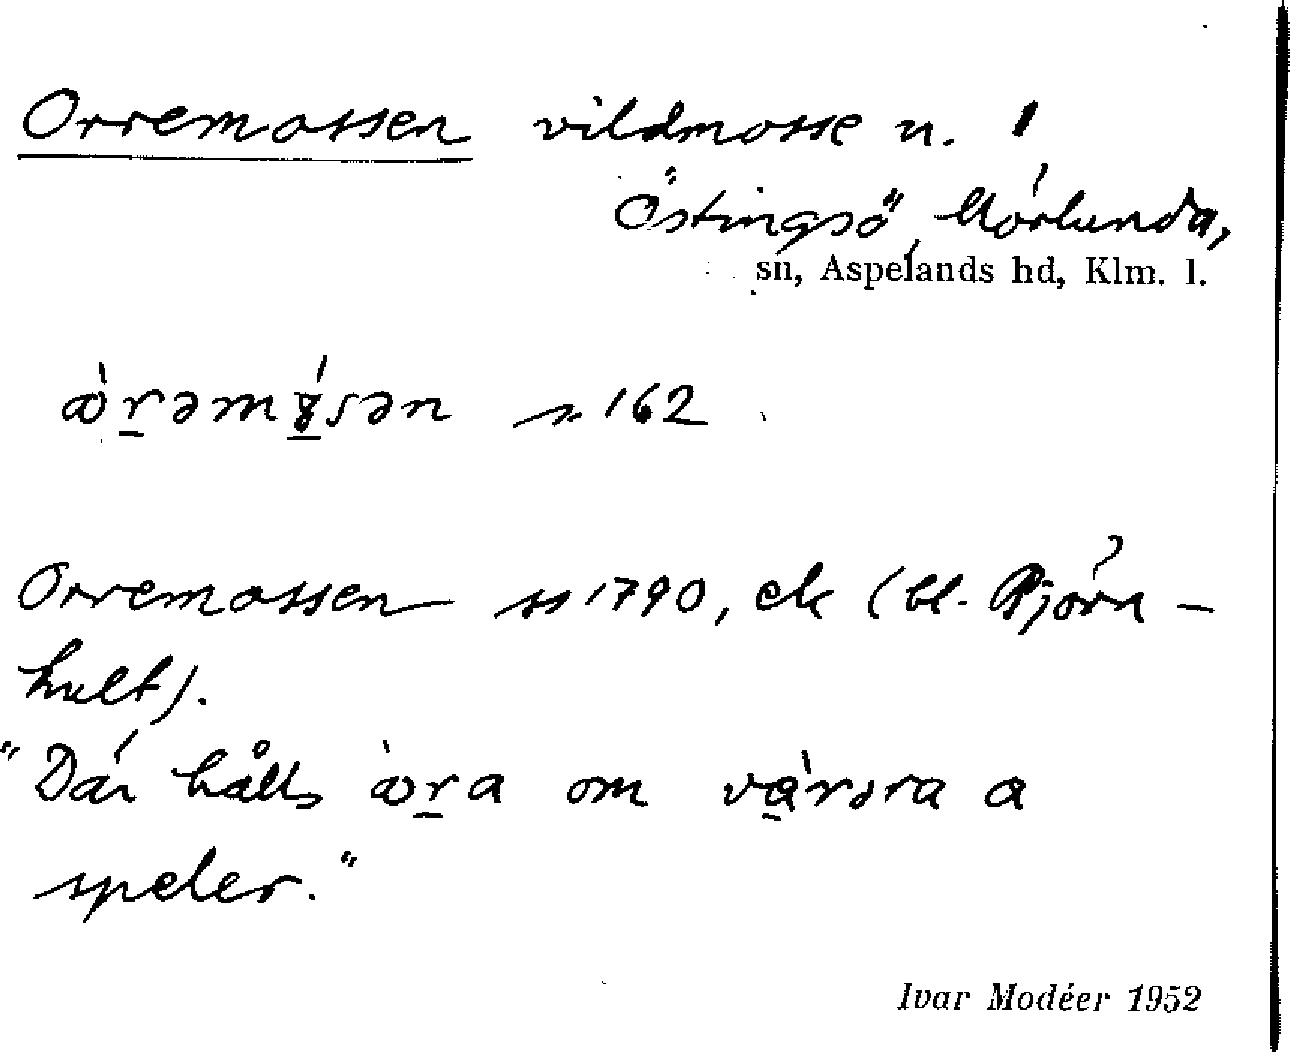 Orremossen vildmosse n. 1
Östingsö, Mörlunda,
sn, Aspelands hd, Klm. l.
s. 162
Orremossen ss 1790, ek (bl. Björn-
hult).
"Där hålls om a
speler."
Ivar Modéer 1952